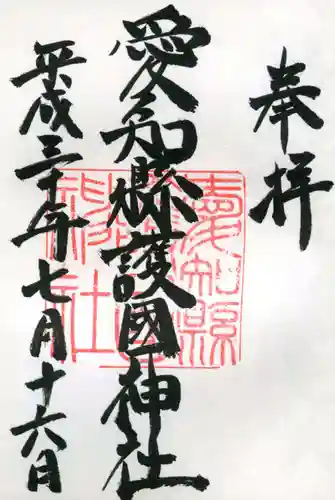 奉拝
愛知縣護國神社
平成三十年七月十六日
愛知縣護國神社